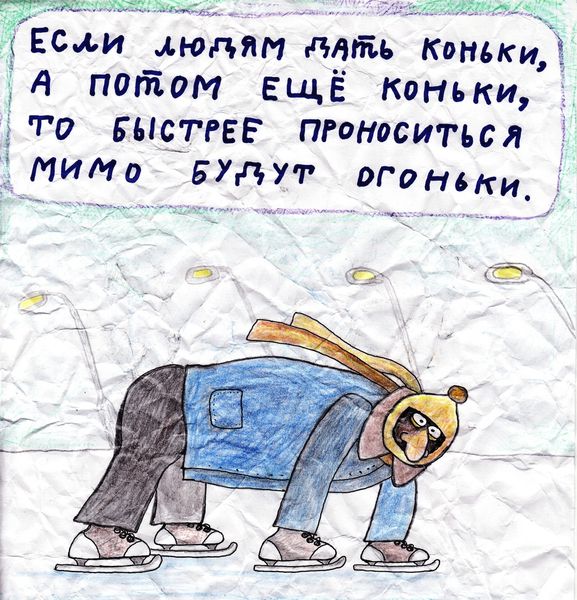 ЕСЛИ ЛЮДЯМ ДАТЬ КОНЬКИ,
А ПОТОМ ЕЩЁ КОНЬКИ,
ТО БЫСТРЕЕ ПРОНОСИТЬСЯ
МИМО БУДУТ ОГОНЬКИ.